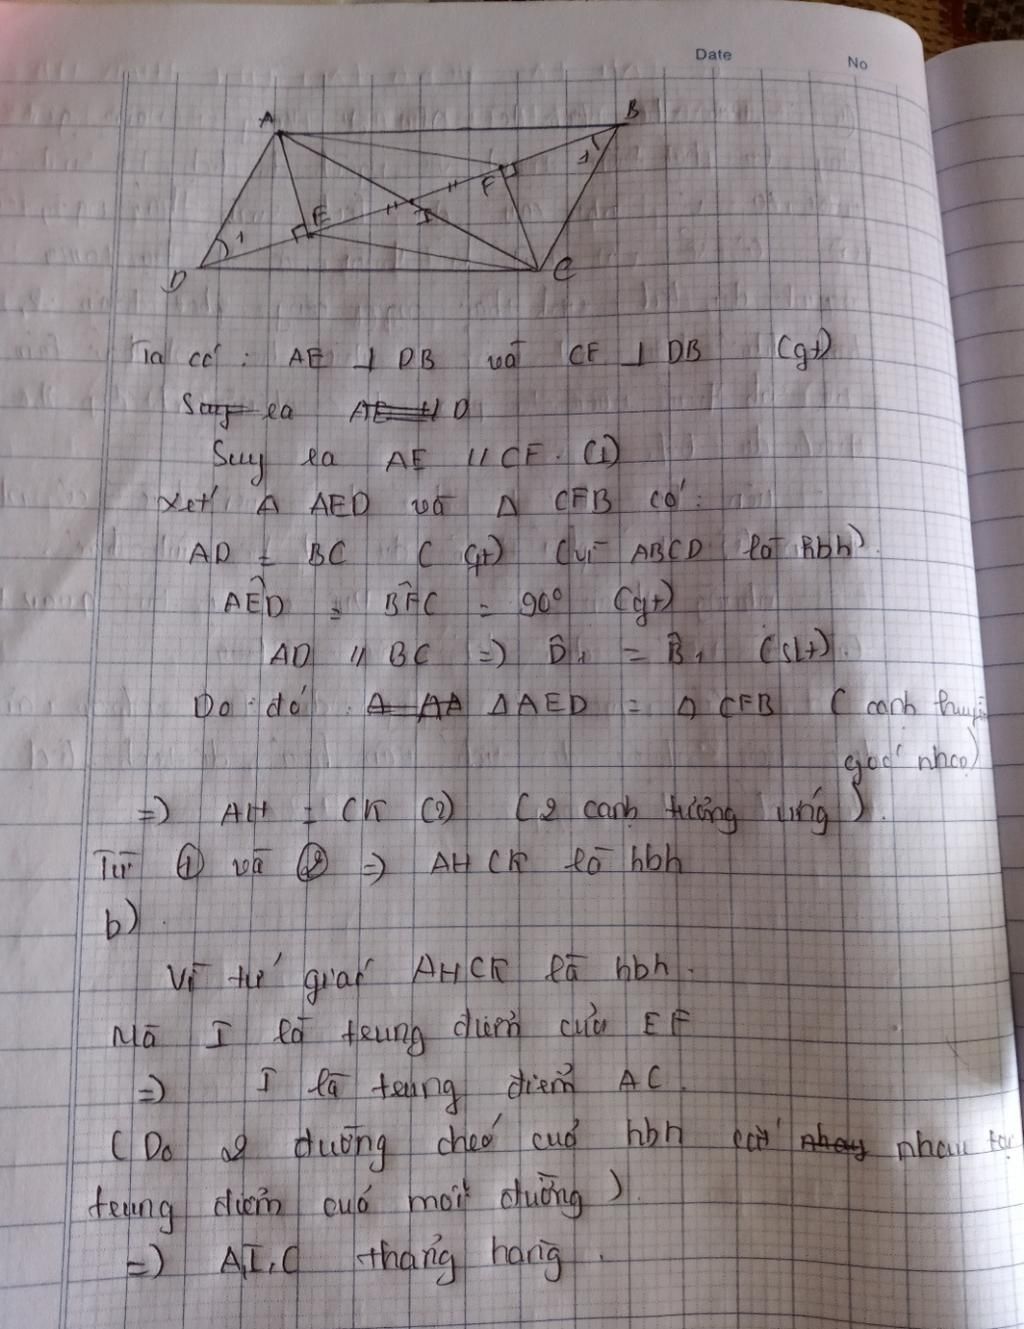 Date
No
A
B
F
1
E
I
1
D
C
Ta có : AE ⊥ DB và CF ⊥ DB (gt)
Suy ra AE // D
Suy ra AE // CF. (1)
Xét Δ AED và Δ CFB có :
AD = BC (gt) (vì ABCD là hbh)
AÊD = BF̂C = 90° (gt)
AD // BC => D̂₁ = B̂₁ (slt).
Do đó : Δ AA ΔAED = Δ CFB (cạnh huyền
góc nhọn)
=> AH = CK (2) (2 cạnh tương ứng).
Từ ① và ② => AHCK là hbh
b).
Vì tứ giác AHCK là hbh.
Mà I là trung điểm của EF
=> I là trung điểm AC.
(Do 2 đường chéo của hbh cắt nhau nhau tại
trung điểm của mỗi đường).
=> A,I,C thẳng hàng.